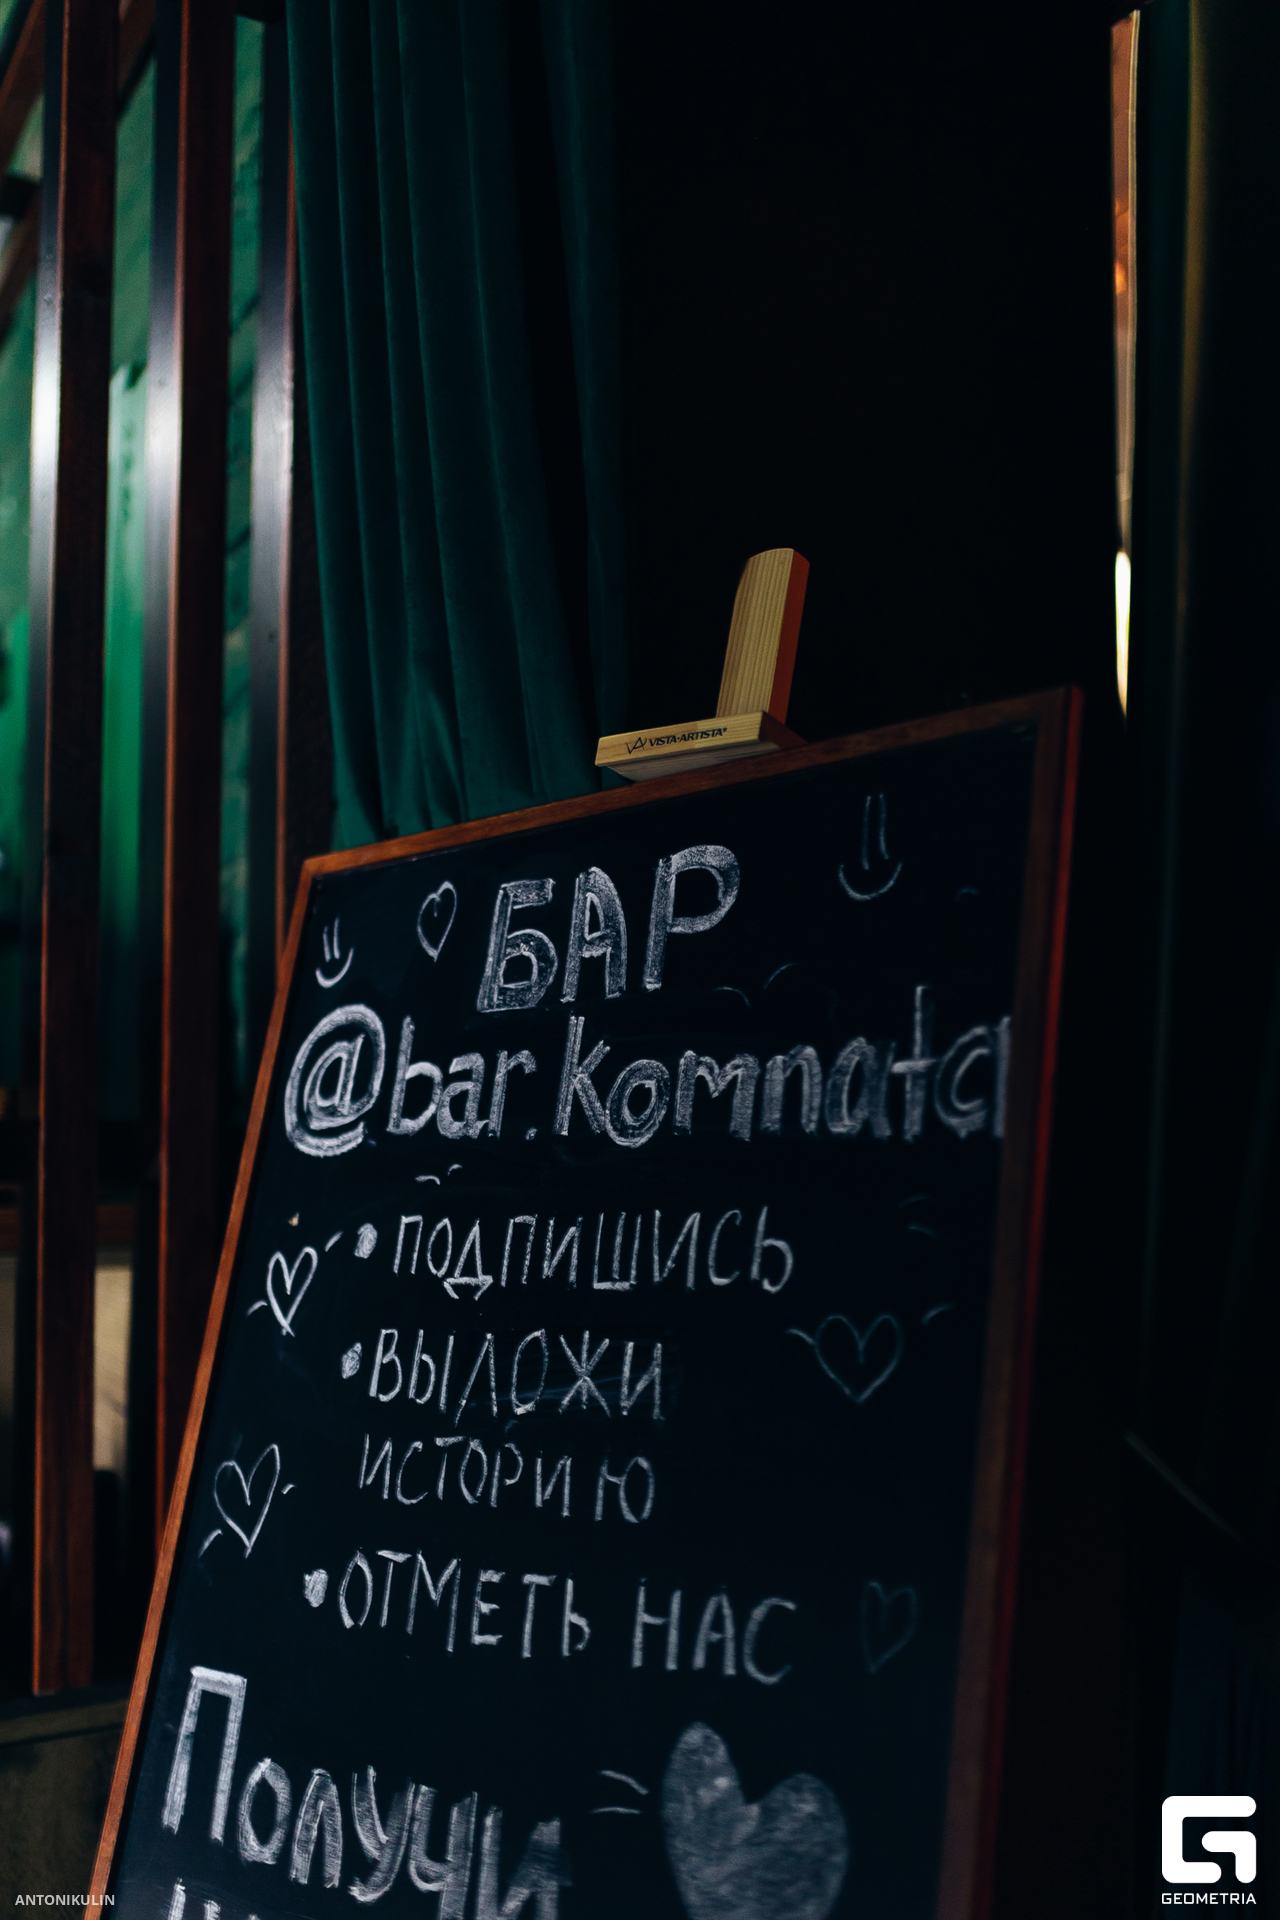 VISTA-ARTISTA®
БАР
@bar.komnata
• ПОДПИШИСЬ
• ВЫЛОЖИ
ИСТОРИЮ
• ОТМЕТЬ НАС
Получи
ANTONIKULIN
GEOMETRIA